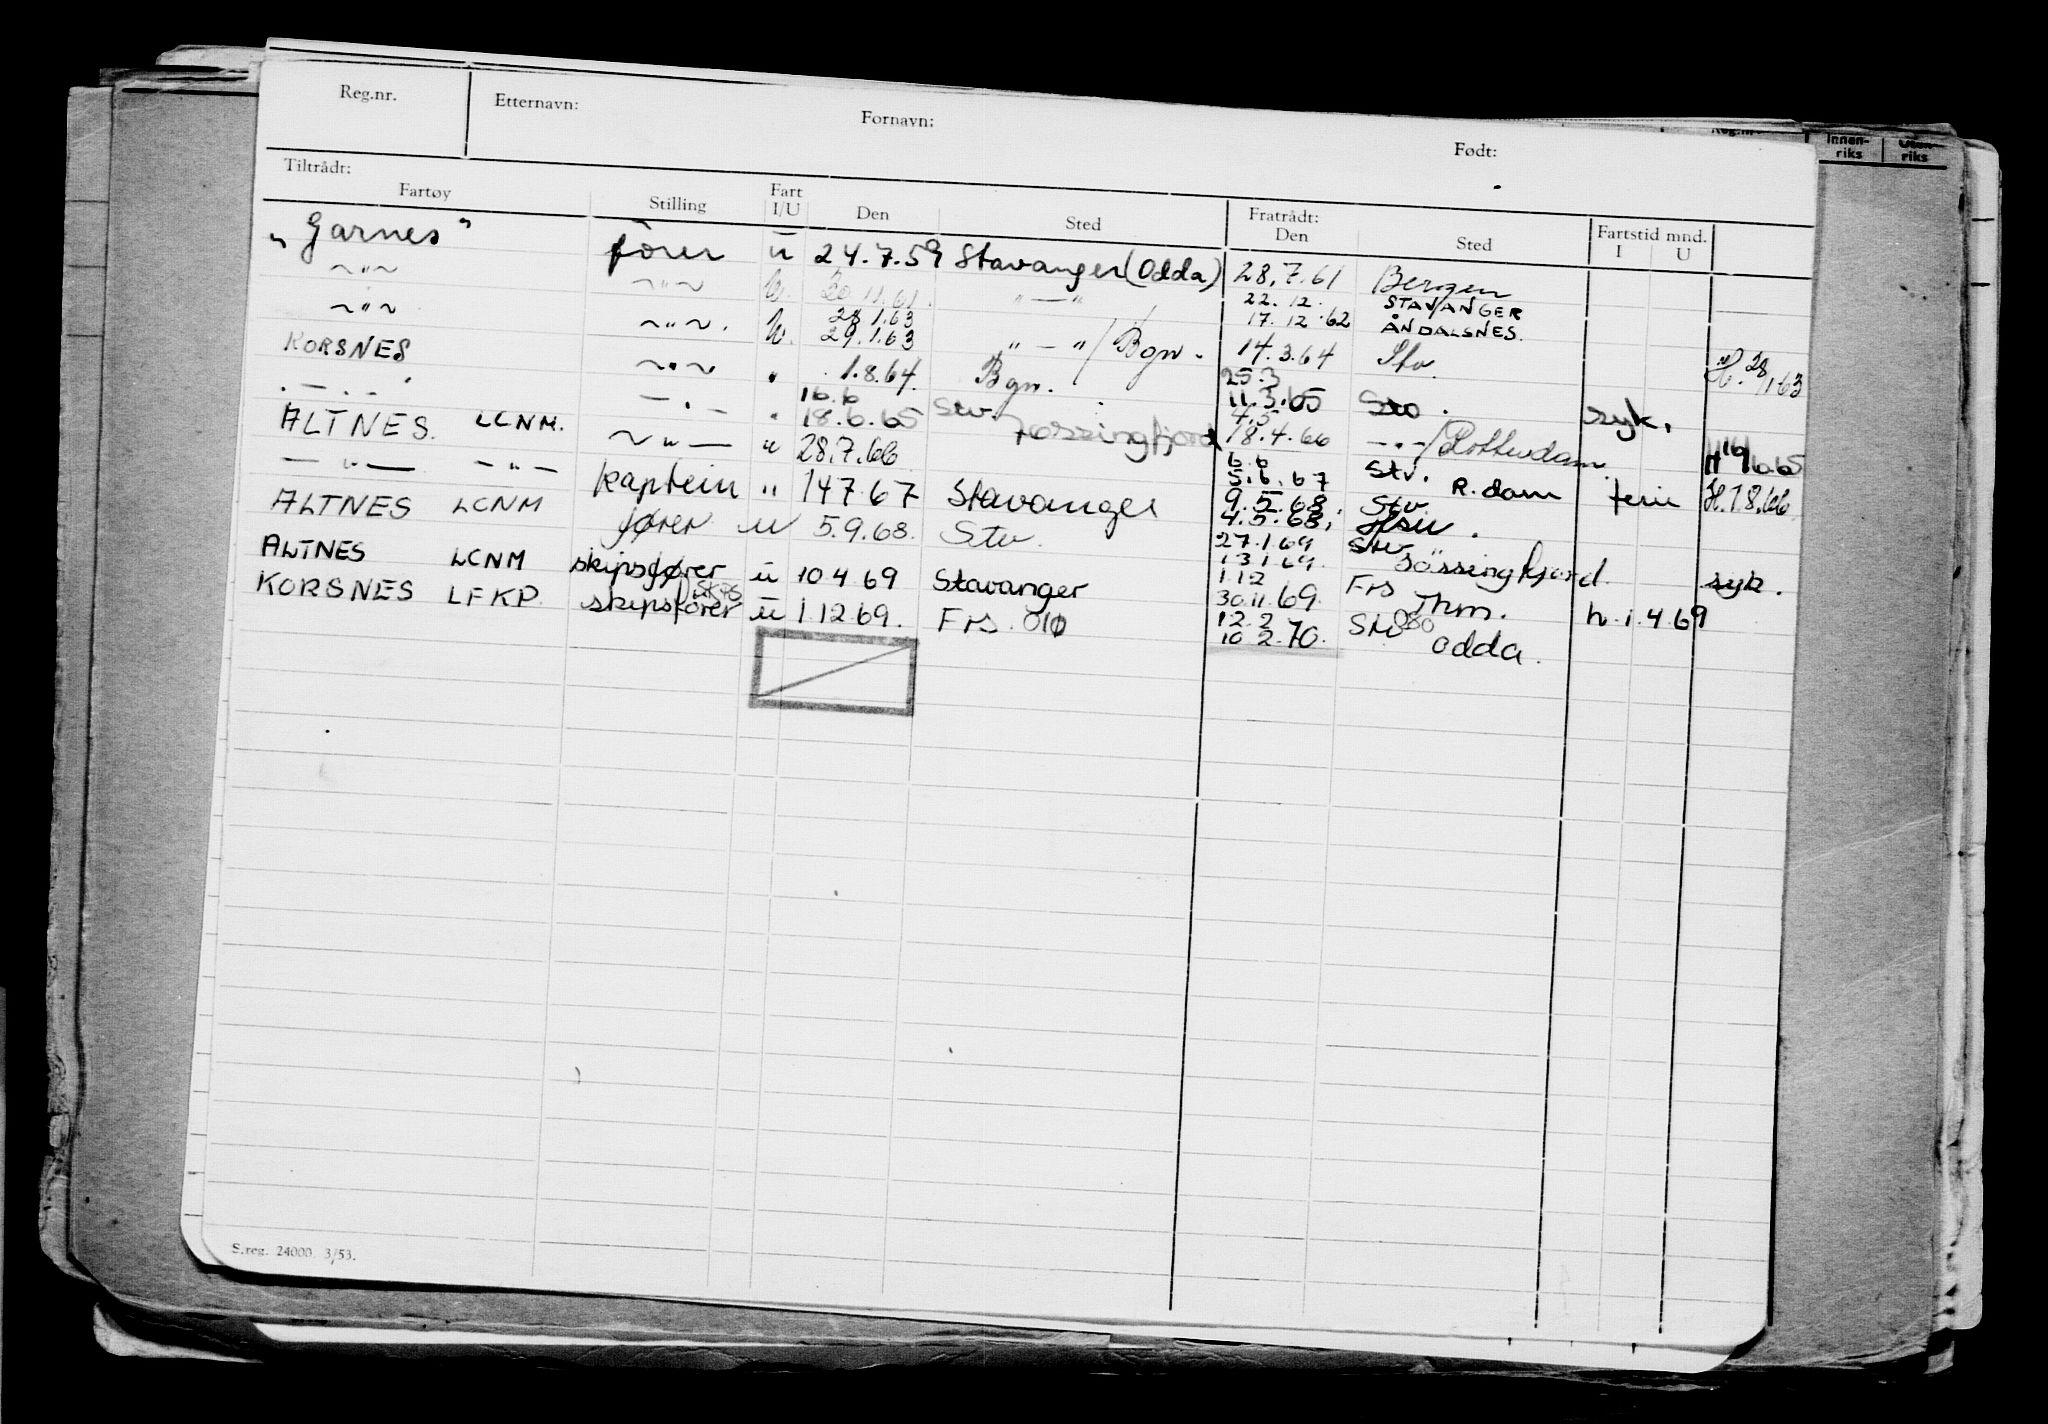 Reg.nr. Etternavn: Fornavn: Født:
Reg.nr. Innen-riks Uten-riks
Tiltrådt: Fratrådt:
Fartøy Stilling Fart I/U Den Sted Den Sted Fartstid mnd. I U
"Garnes" fører u 24.7.59 Stavanger (Odda) 28.7.61 Bergen
~"~ ~"~ u. 20 11.61. " — " 22.12. STAVANGER
17.12.62 ÅNDALSNES.
~"~ ~"~. u. 28.1.63
29.1.63 " — " / Bgn. 14.3.64 Stv. H. 28/1 63
KORSNES ~"~ " 1.8.64. Bgn. 25.3
11.3.65 Sto. syk.
. — . — . — . — " 16.6
18.6.65 Stv. Jossingfjord 4.5
18.4.66 — . — / Rotterdam H 16/6.65
ALTNES. LCNM. ~ " — " 28.7.66 6.6
5.6.67 Stv. R.dam ferie H. 1 8.66
— " — — " — kaptein " 14 7 67 Stavanger 9.5.68. Stv.
4.5.68,
ALTNES LCNM fører u 5.9.68. Stv. 27.1.69 Stv.
13.1.69. Jøssingfjord. syk.
ALTNES LCNM skipsfører u 10 4 69 Stavanger 1.12 Frs
30.11.69. Thm. h.i.4 69
KORSNES LFKP. skipsfører u 1.12.69. Frs. 010 12.2 Stv 080
10.2.70. Odda.
S.reg. 24000. 3/53.